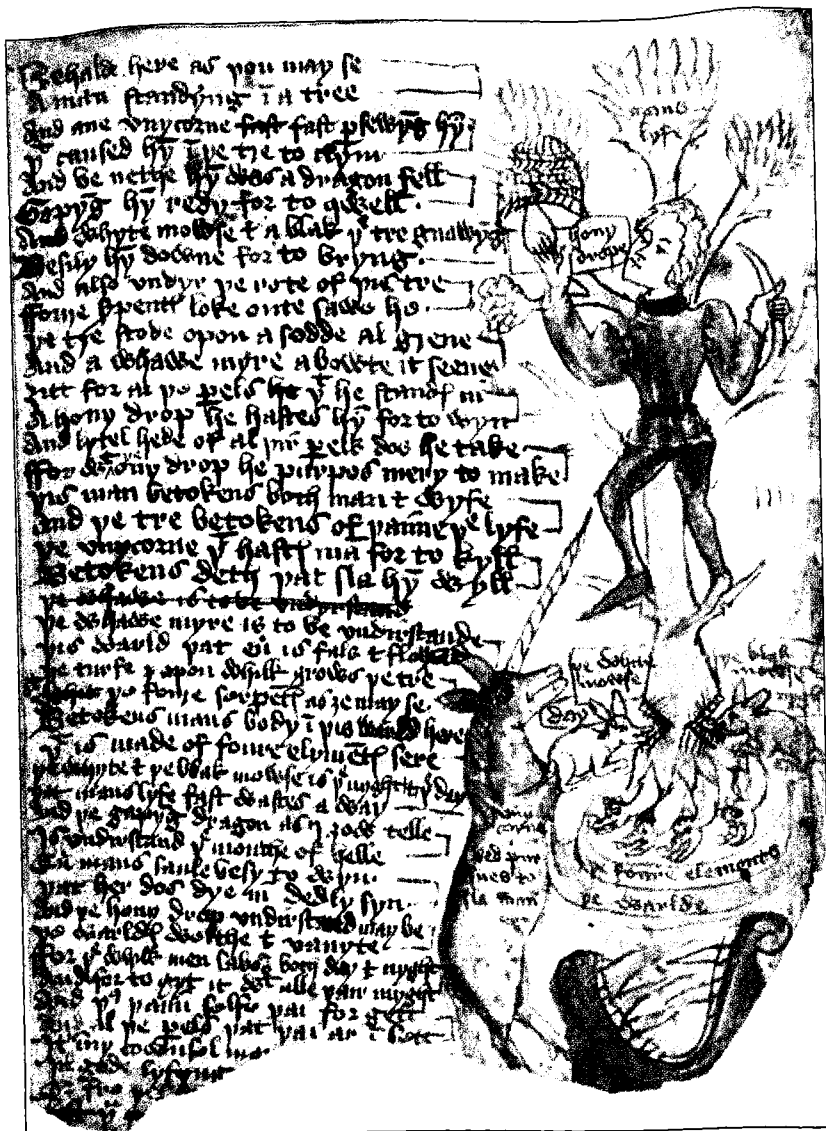 Behalde here as þou may se
A man standyng ī a tree
And ane vnycorne fast fast psewyg hȳ
þt caused hȳ ī þe tre to clym
And be nethe hȳ was a dragon fell
Gapyg hȳ redy for to qwell
And whyte mowse & a blak þe tre gnawyg
Besily hȳ downe for to bryng
And also vndyr þe rote of þis tre
ffowre serpentes loke oute sawe he
þe tre stode opon a sodde al grene
And a whawe myre abowte it seene
ȝitt for al þo pels þt he standes in
A hony drop he hastes hȳ for to wyn
And lytel hede of al þir pels dos he take
ffor wt hony drop he purpos mery to make
þis man betokens both man & wyfe
And þe tre betokens of þaime þe lyfe
þe vnycorne þt hastes ma for to kyll
Betokens deth þat sla hȳ wyll
þe whawe is to be vndyrstand
þe whawe myre is to be vndirstande
þis warld þat eū is fals &
þe turfe opon whilk grows þe tre
þe fowre serpetes as ȝe may se
Betokens mans body ī þis warld here
þt is made of fowre elymētes sere
þe whyte & þe blak mowse is þe nyght & þe day
þat mans lyfe fast wastes a way
And þe gapyg dragon as I ȝow telle
Is vndirstand þe mowthe of helle
Eū mans saule besy to wyn
þat her dos dye in dedly syn
And þe hony drop vndirstand may be
þe warldes welthe & vanyte
ffor þe whilk men labors both day & nyght
And for to gyt it wt alle þair myght
And þus þaim selfe þai for gett
And al þe pels þat þai ar ī sett
my cownsel
gode lyfyng
mans
lyfe
hony
drope
þe whyte
mowse
þe blak
mowse
day
vny
corne
ded pur
sues to
sla man
þe fowre elements
þe warlde